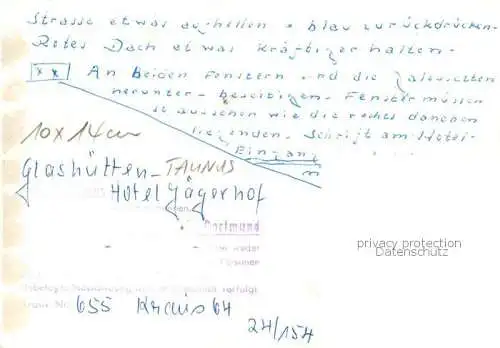 Strasse etwas aufhellen + blau zurückdrücken.
Rotes Dach etwas kräftiger halten.
** An beiden Fenstern sind die Jalousetten
herunter - beseitigen. Fenster müssen
so aussehen wie die rechts daneben
liegenden. Schrift am Hotel-
Eingang
10x14cm
Glashütten - TAUNUS
Hotel Jägerhof
Dortmund
weder
Personen
verfolgt
655 Krais 64
24/154
privacy protection
Datenschutz